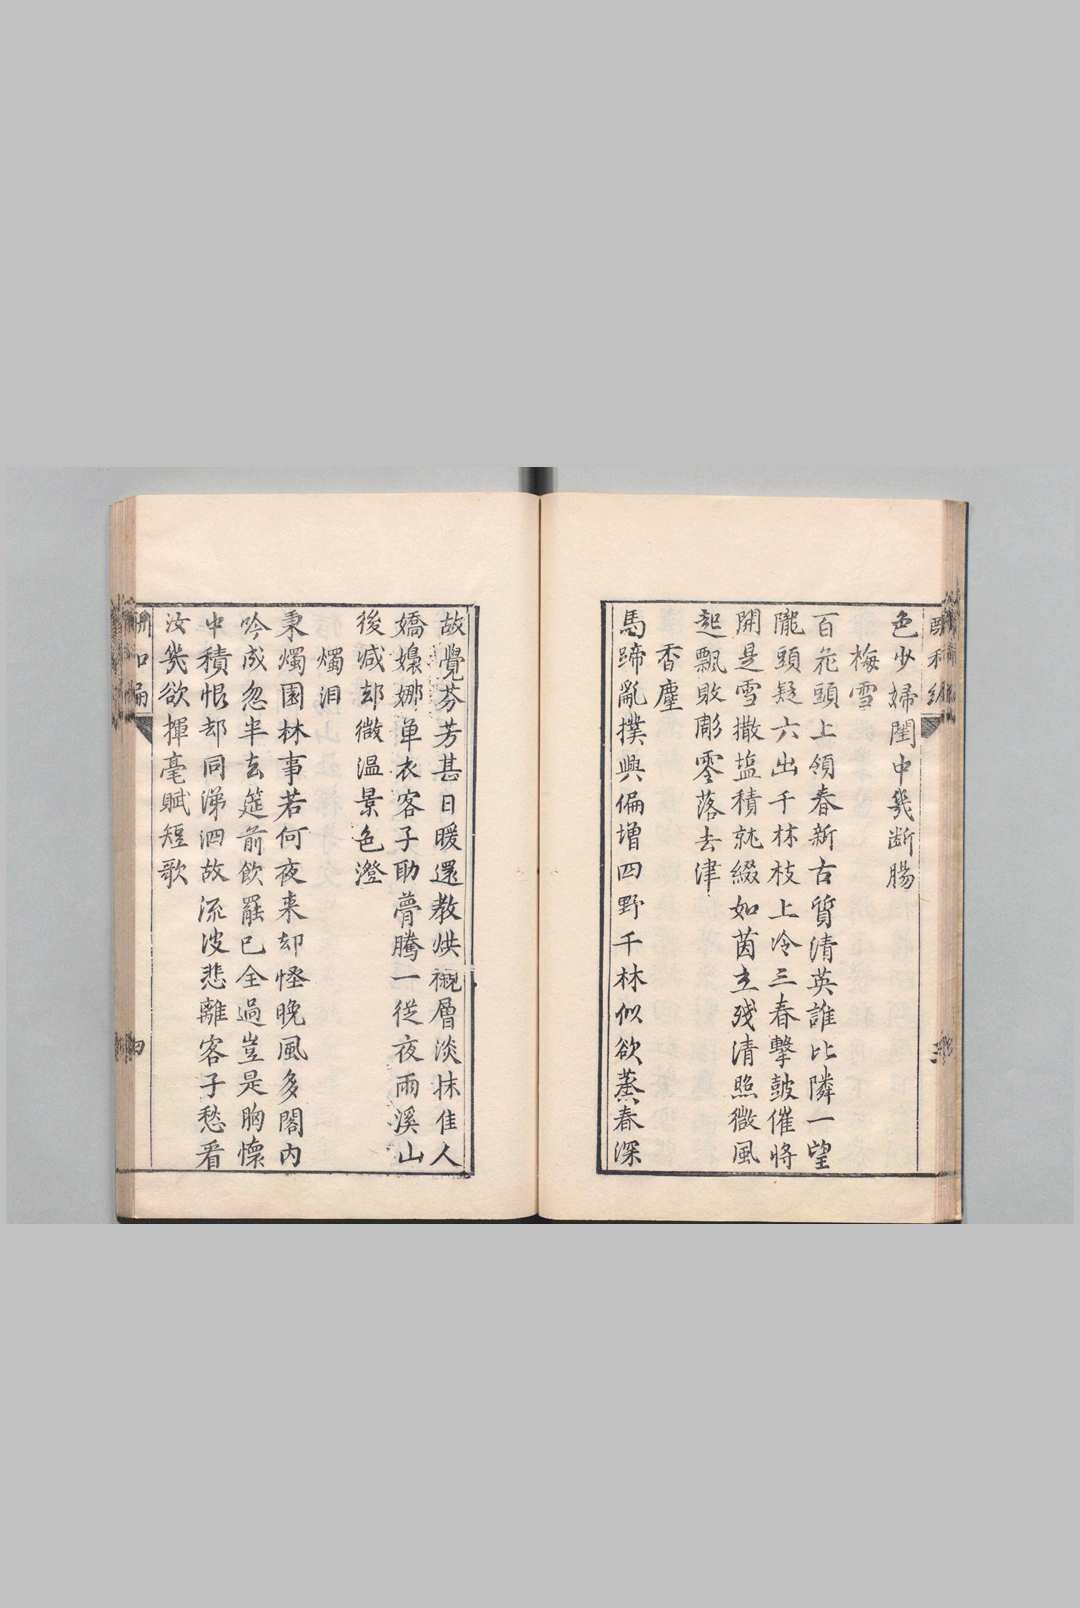 色少婦閨中幾断腸
梅雪
百花頭上領春新古質清英誰比隣一望
隴頭疑六出千林枝上冷三春擊皷催将
開是雪撒塩積就綴如茵立殘清照微風
起飄敗彫零落去津
香塵
馬蹄亂撲興偏增四野千林似欲蒸春深
故覺芬芳甚日暖還教烘襯層淡抹佳人
嬌嬝娜单衣客子助薈騰一從夜雨溪山
後减却微温景色澄
燭泪
秉燭園林事若何夜来却怪晚風多閣内
吟成忽半去筵前飲罷已全過豈是胸懷
中積恨却同涕泗故流波悲離客子愁看
汝幾欲揮毫賦短歌
四